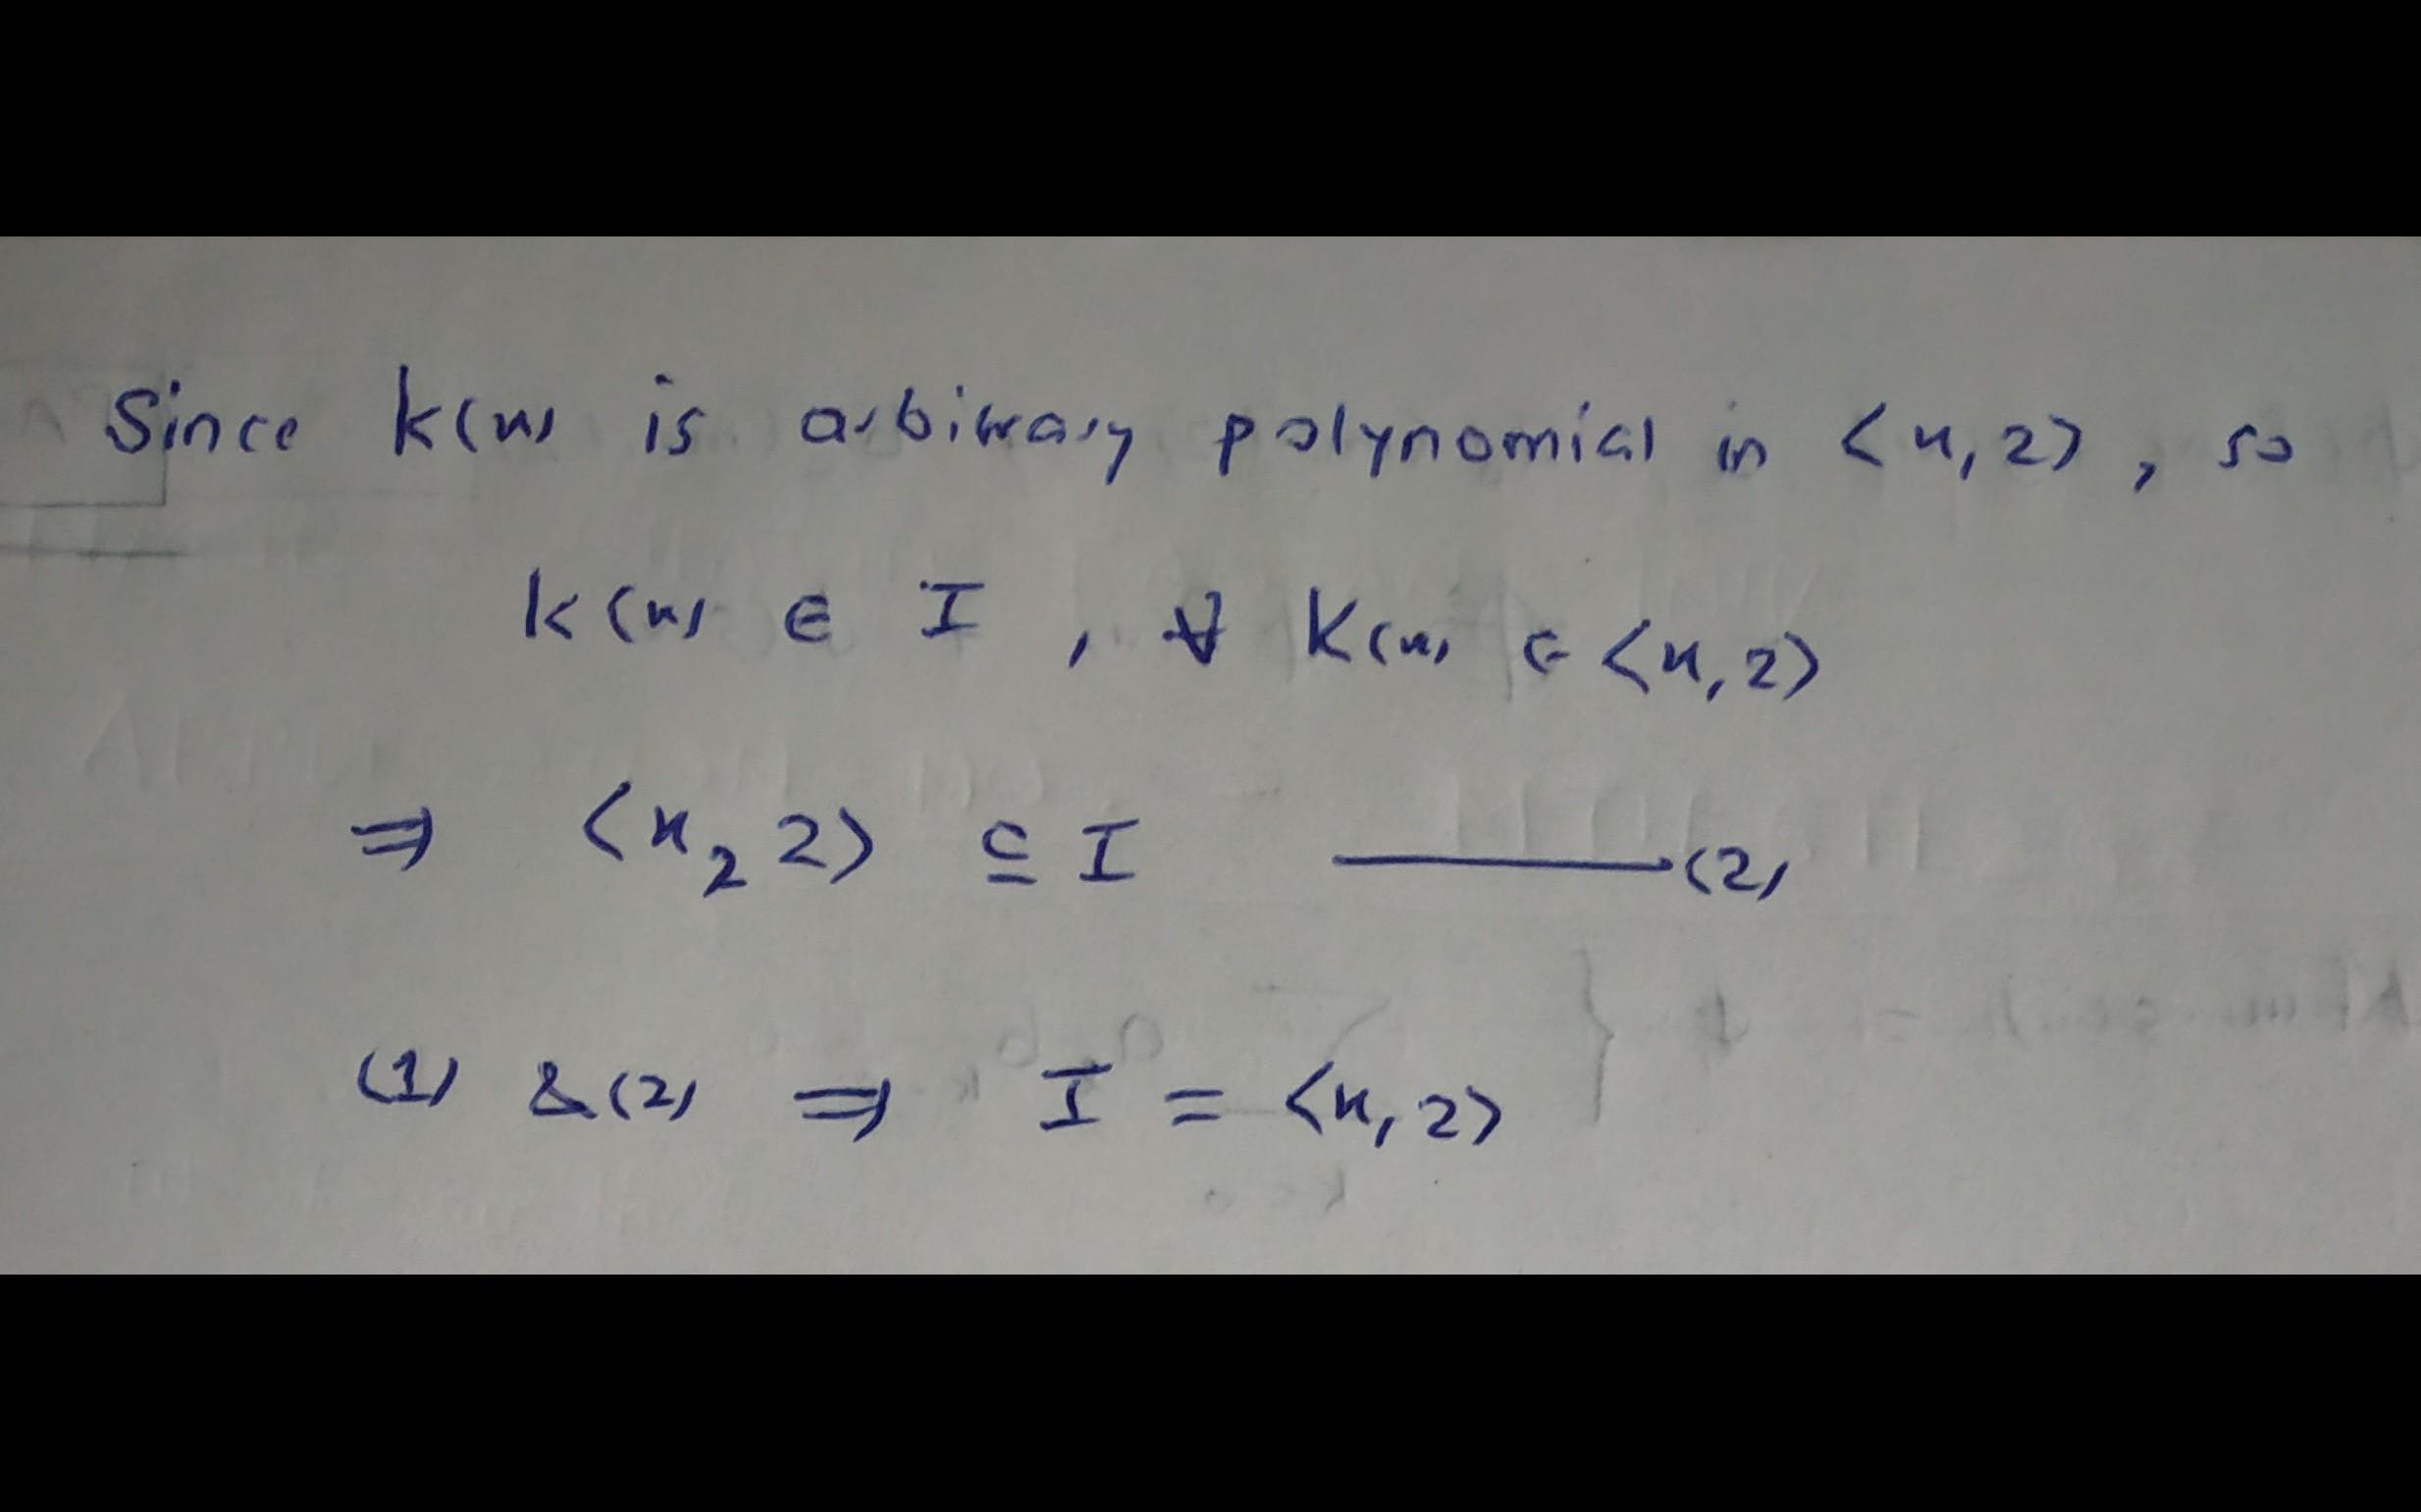 Since k(x) is arbitrary polynomial in <x,2>, so
k(x) ∈ I , ∀ K(x) ∈ <x,2>
⇒ <x, 2> ⊆ I ———(2)
(1) & (2) ⇒ I = <x,2>